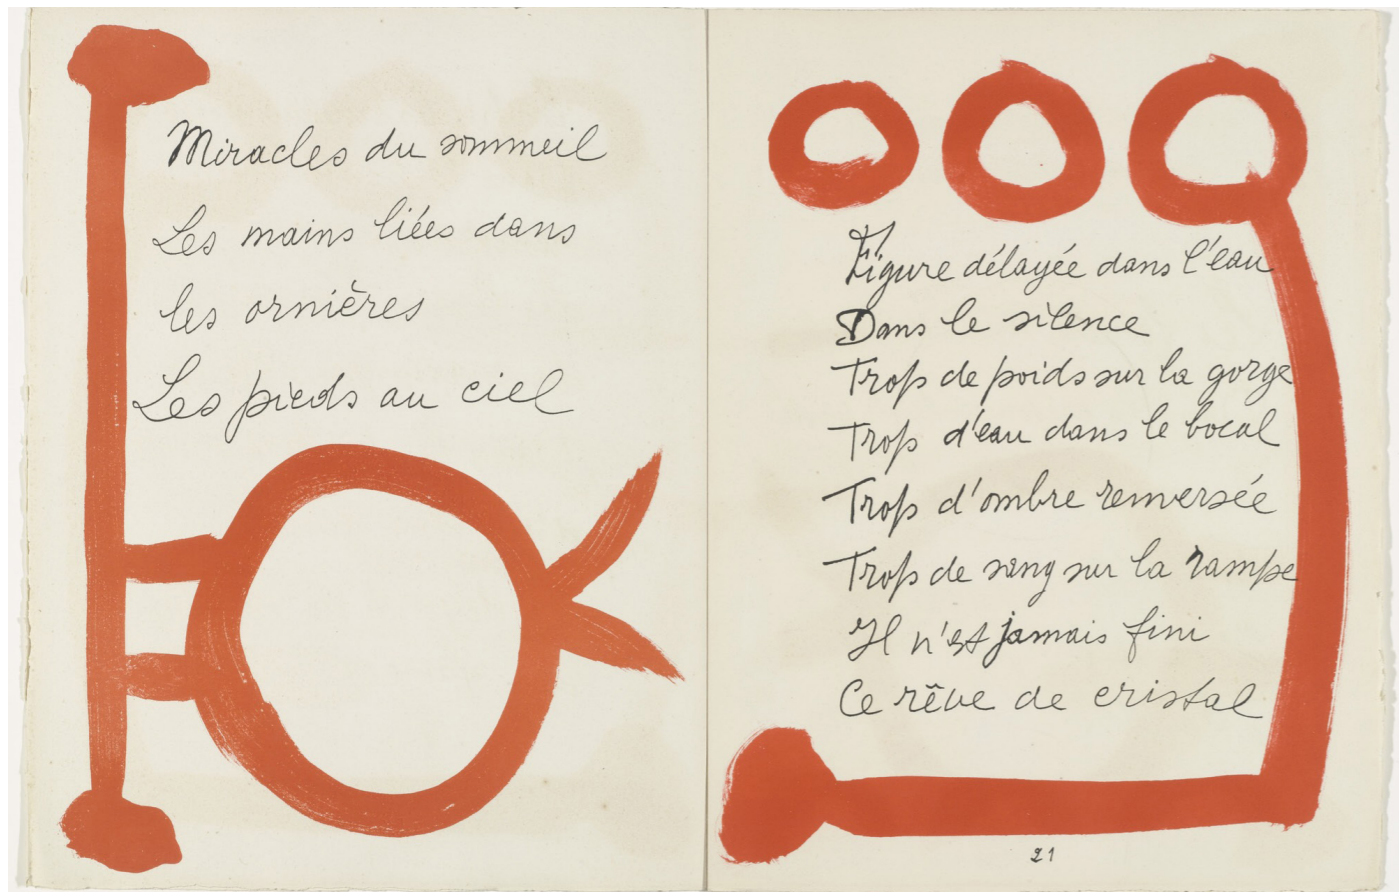 Miracles du sommeil
Les mains liées dans
les ornières
Les pieds au ciel
Figure délayée dans l'eau
Dans le silence
Trop de poids sur la gorge
Trop d'eau dans le bocal
Trop d'ombre renversée
Trop de sang sur la rampe
Il n'est jamais fini
Ce rêve de cristal
21